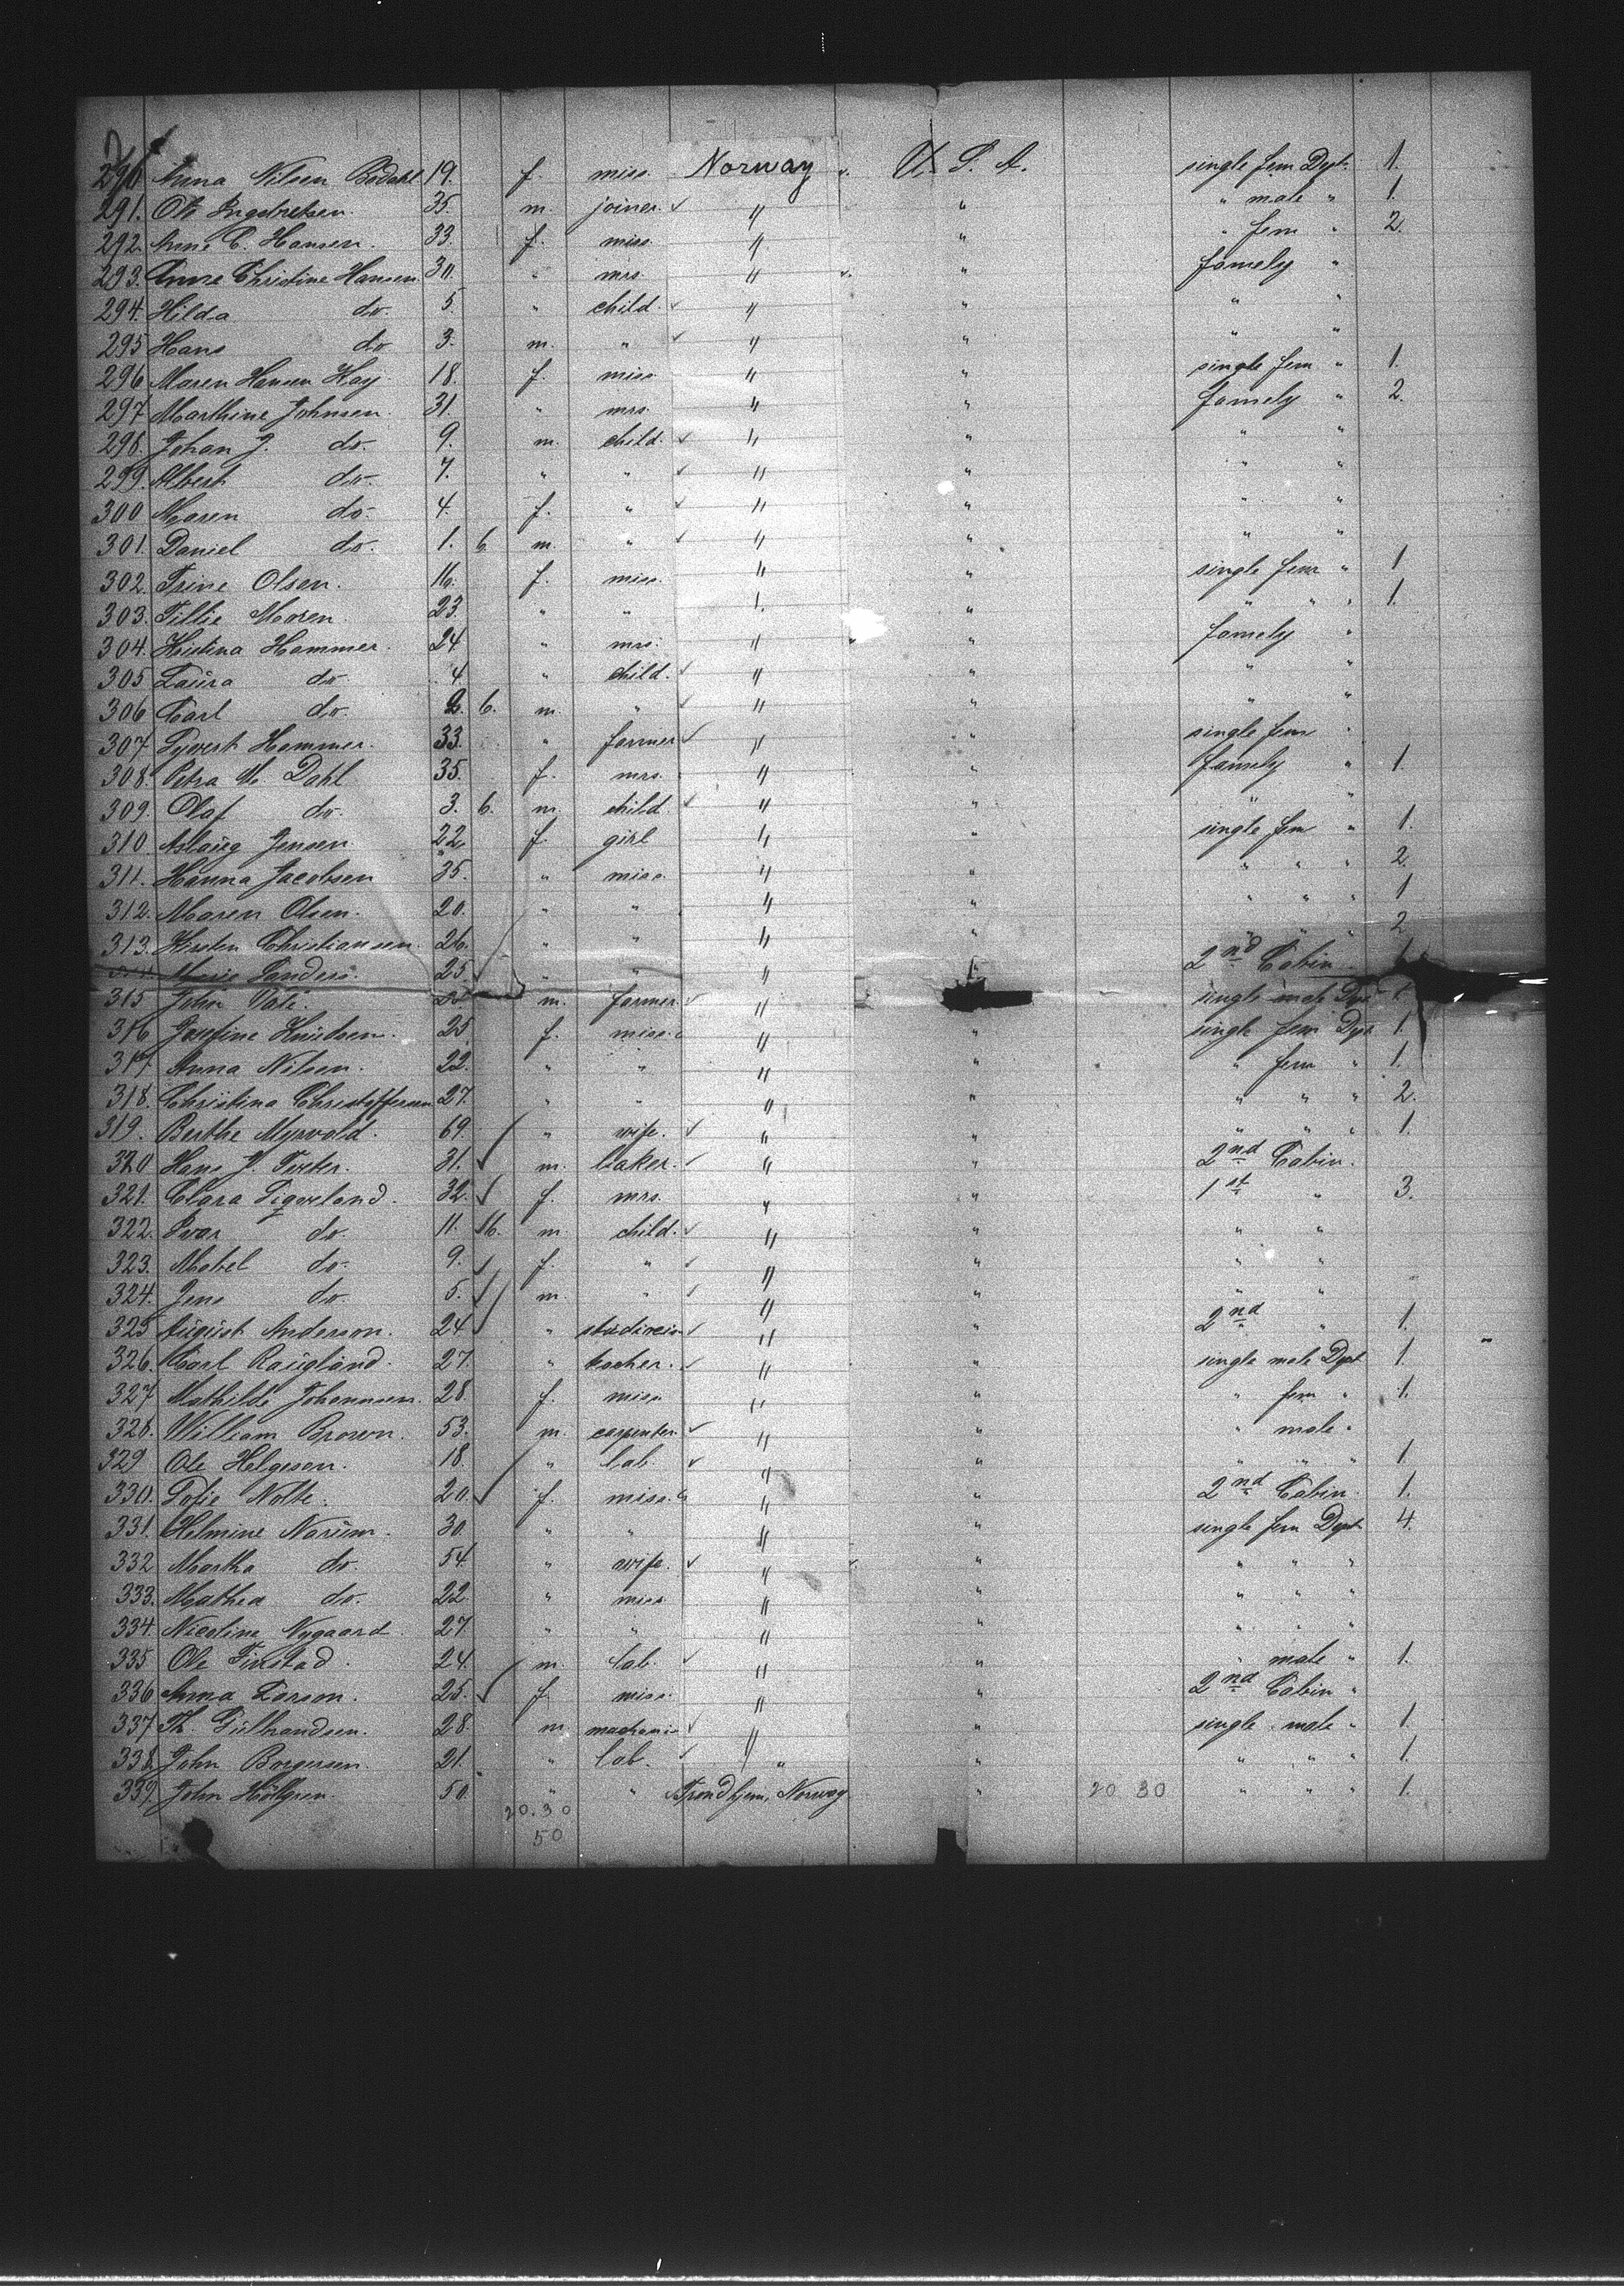 290 Anna Nilsen Bodahl 19. f. miss. Norway U. S. A. single fem Dept. 1.
291. Ole Ingebretsen. 35. m. joiner. " " " male " 1.
292. Anne C. Hansen. 33. f. miss. " " " fem " 2.
293. Anne Christine Hansen. 30. " mrs. " " famely "
294. Hilda do. 5. " child. " " " "
295 Hans do 3. m. " " " " "
296 Maren Hansen Hay. 18. f. miss " " single fem " 1.
297 Marthine Johnsen. 31. " mrs. " " famely " 2.
298. Johan J. do. 9. m. child. " " " "
299. Albert do. 7. " " " " " "
300 Maren do. 4. f. " " " " "
301. Daniel do. 1. 6. m. " " " " "
302. Trine Olsen. 16. f. miss. " " single fem " 1
303. Tillie Maren 23. " " " " " " " 1.
304. Kristina Hammer. 24 " mrs. " " famely "
305 Laura do 4. " child. " " " "
306 Carl do. 2. 6. m. " " " " "
307 Hammer. 33. " farmer " " single fem "
308. Petra M. Dahl 35. f. mrs. " " famely " 1.
309. Olaf do. 3. 6. m. child " " " "
310. Aslaug Jensen 22. f. girl " " single fem " 1.
311. Hanna Jacobsen 35. " miss. " " " " " 2.
312. Maren Olsen. 20. " " " " " " " 1
313. Kirsten Christiansen. 26. " " " " " " " 2
Marie Sanders. 25. " " " " 2nd Cabin 1.
315 John m. farmer. " " single male Dept 1.
316 Josefine Knudsen. 25. f. miss. " " single fem Dept 1.
317. Anna Nilsen. 22. " " " " " fem " 1.
318. Christina Christoffersen 27. " " " " " " " 2.
319. Berthe Myrvold. 69. " wife. " " " " " 1.
320 Hans J. Tveter. 31. m. baker. " " 2nd Cabin.
321. Clara Tigerland. 32. f. mrs. " " 1st " 3.
322. Ivar do. 11. m. child. " " " "
323. Mabel do. 9. f. " " " " "
324. Jens do. 5. m. " " " " "
325 August Anderson. 24. " " " 2nd " 1.
326. Carl Raugland. 27. " " " single male Dept 1.
327 Mathilde Johannsen. 28. f. miss " " " fem " 1.
328. William Brown. 53. m. carpenter " " " male "
329 Ole Helgesen. 18. " lab " " " " " 1.
330. Sofie Nolte. 20. f. miss. " " 2nd Cabin. 1.
331. Helmine Narum. 30. " " " " single fem Dept 4.
332 Martha do. 54. " wife. " " " " "
333. Mathea do. 22. " miss " " " " "
334. Nicoline Nygaard. 27. " " " " " " "
335 Ole Finstad. 24. m. lab. " " " male " 1.
336 Anna Larson. 25. f. miss. " " 2nd Cabin "
337 Th. Gulbrandsen. 28. m machanic " " single male " 1.
338. John Borgersen. 21. " lab. " " " " " " 1.
339. John Höllgren. 50. " " Trondhjem, Norway " 20 30 " " " 1.
20.30
50